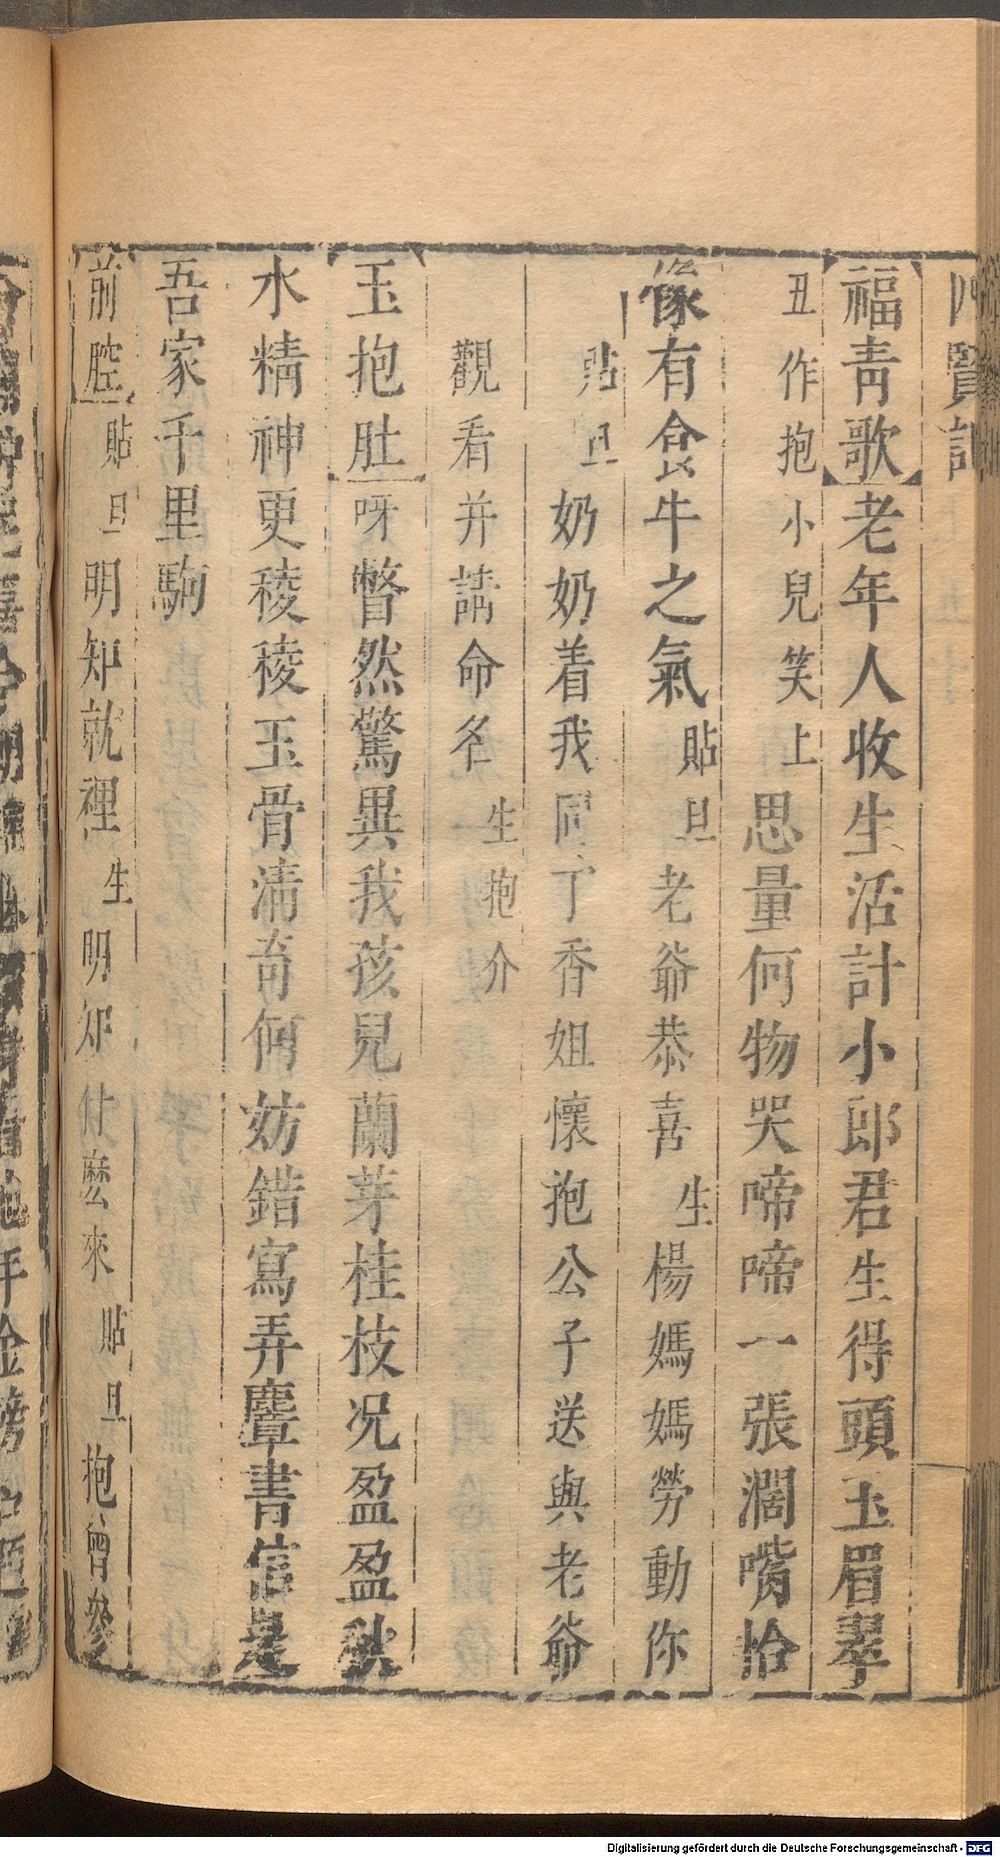 四賢記
福青歌老年人收生活計小郎君生得頭玉眉翠
丑作抱小兒笑上思量何物哭啼啼一張濶嘴恰
像有食牛之氣貼旦老爺恭喜生楊媽媽勞動你
貼旦奶奶着我同丁香姐懷抱公子送與老爺
觀看并請命名生抱介
玉抱肚呀瞥然驚異我孩兒蘭芽桂枝况盈盈秋
水精神更稜稜玉骨清奇何妨錯寫弄麞書信是
吾家千里駒
前腔貼旦明知就裡生明知什麽來貼旦抱曾參
Digitalisierung gefördert durch die Deutsche Forschungsgemeinschaft - DFG